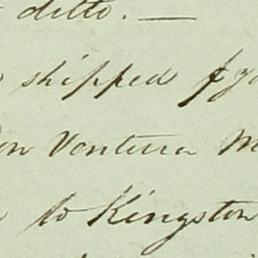 ditto. —
shipped
Ventura
to Kingston